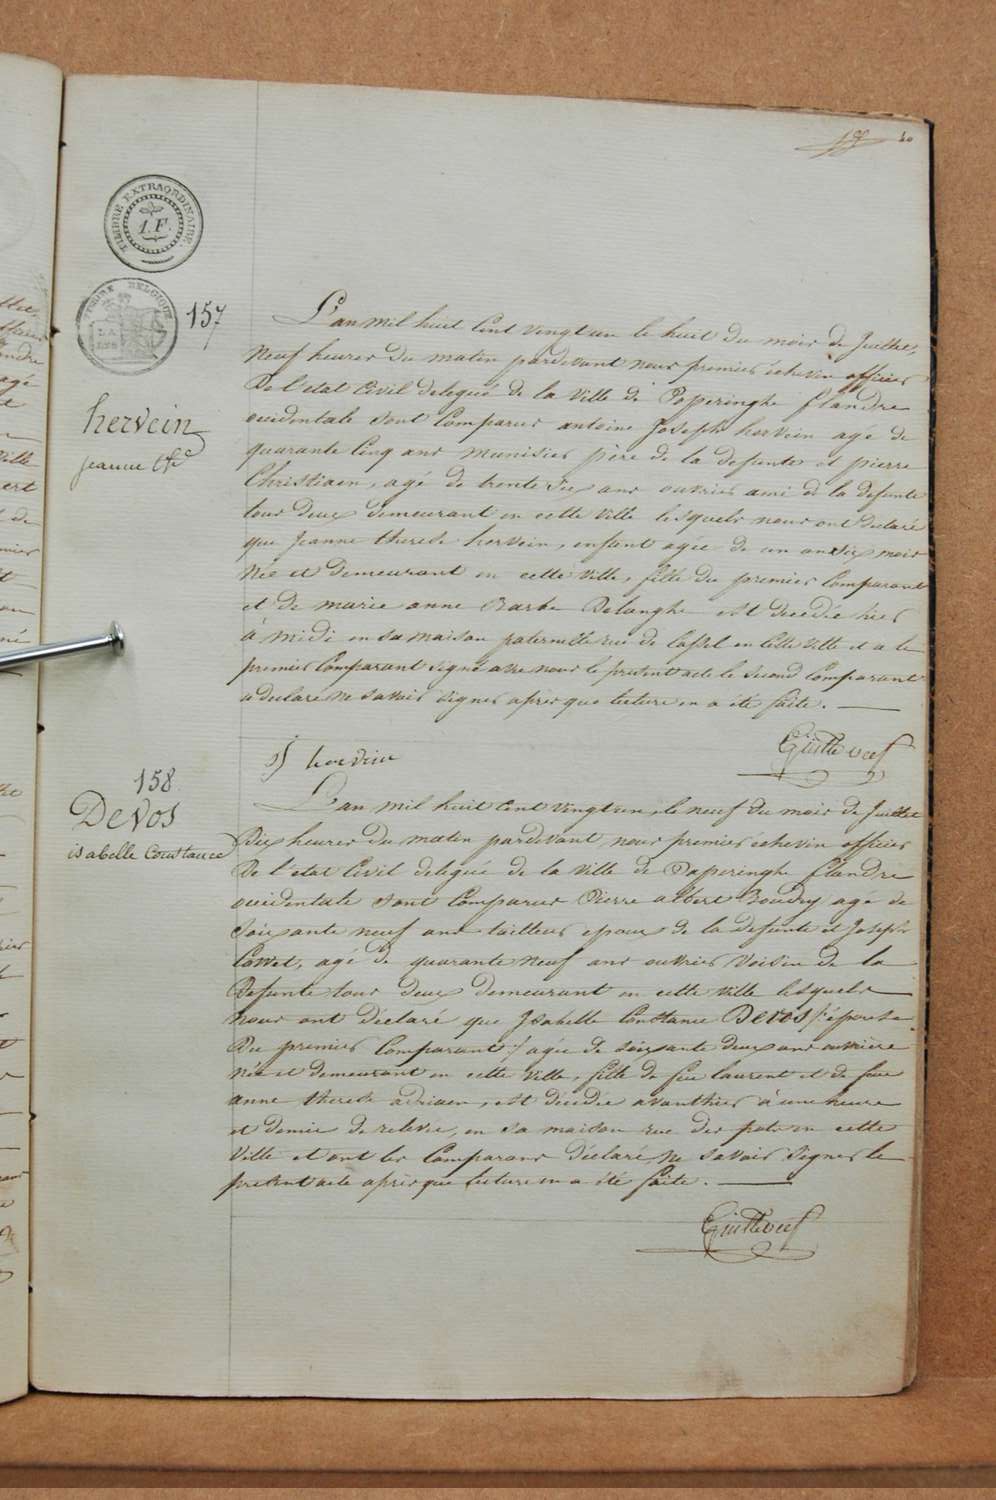 40
TIMBRE EXTRAORDINAIRE
1.F.
TIMBRE BELGIQUE
157
hervein
jeanne thse
L'an mil huit Cent vingt un le huit du mois de Juillet,
Neuf heures du matin pardevant nous premier échevin officier
De l'etat Civil delegué de la Ville de Poperinghe flandre
occidentale sont Comparus antoine Joseph hervein agé de
quarante Cinq ans père de la defunte et pierre
Christiaen, agé de trente six ans ouvrier ami de la defunte
tous deux demeurant en cette Ville lesquels nous ont déclaré
que Jeanne therese hervein, enfant agée de un an six mois
Née et demeurant en cette Ville, fille du premier Comparant
et de marie anne Barbe Delanghe est decedée hier
à midi en sa maison paternelle rue de Cassel en cette Ville et a le
premier Comparant signé avec nous le présent acte le second Comparant
a declaré ne savoir signer après que lecture en a été faite.
hervein
158
DeVos
isabelle Constance
L'an mil huit Cent vingt un, le neuf du mois de Juillet
Dix heures du matin pardevant nous premier échevin officier
De l'etat Civil delegué de la Ville de Poperinghe flandre
occidentale sont Comparus Pierre albert Boudry agé de
soixante neuf ans tailleur epoux de la defunte et Joseph
agé de quarante neuf ans ouvrier Voisin de la
Defunte tous deux demeurant en cette Ville lesquels
nous ont déclaré que Isabelle Constance DeVos /: épouse
Du premier Comparant :/ agée de soixante deux ans ouvrière
Née et demeurant en cette Ville, fille de feu laurent et de feue
anne therese adriaen, est décédée avanthier à une heure
et demie de relevée, en sa maison rue des pots en cette
Ville et ont les Comparans déclaré ne savoir signer le
présent acte après que lecture en a été faite.